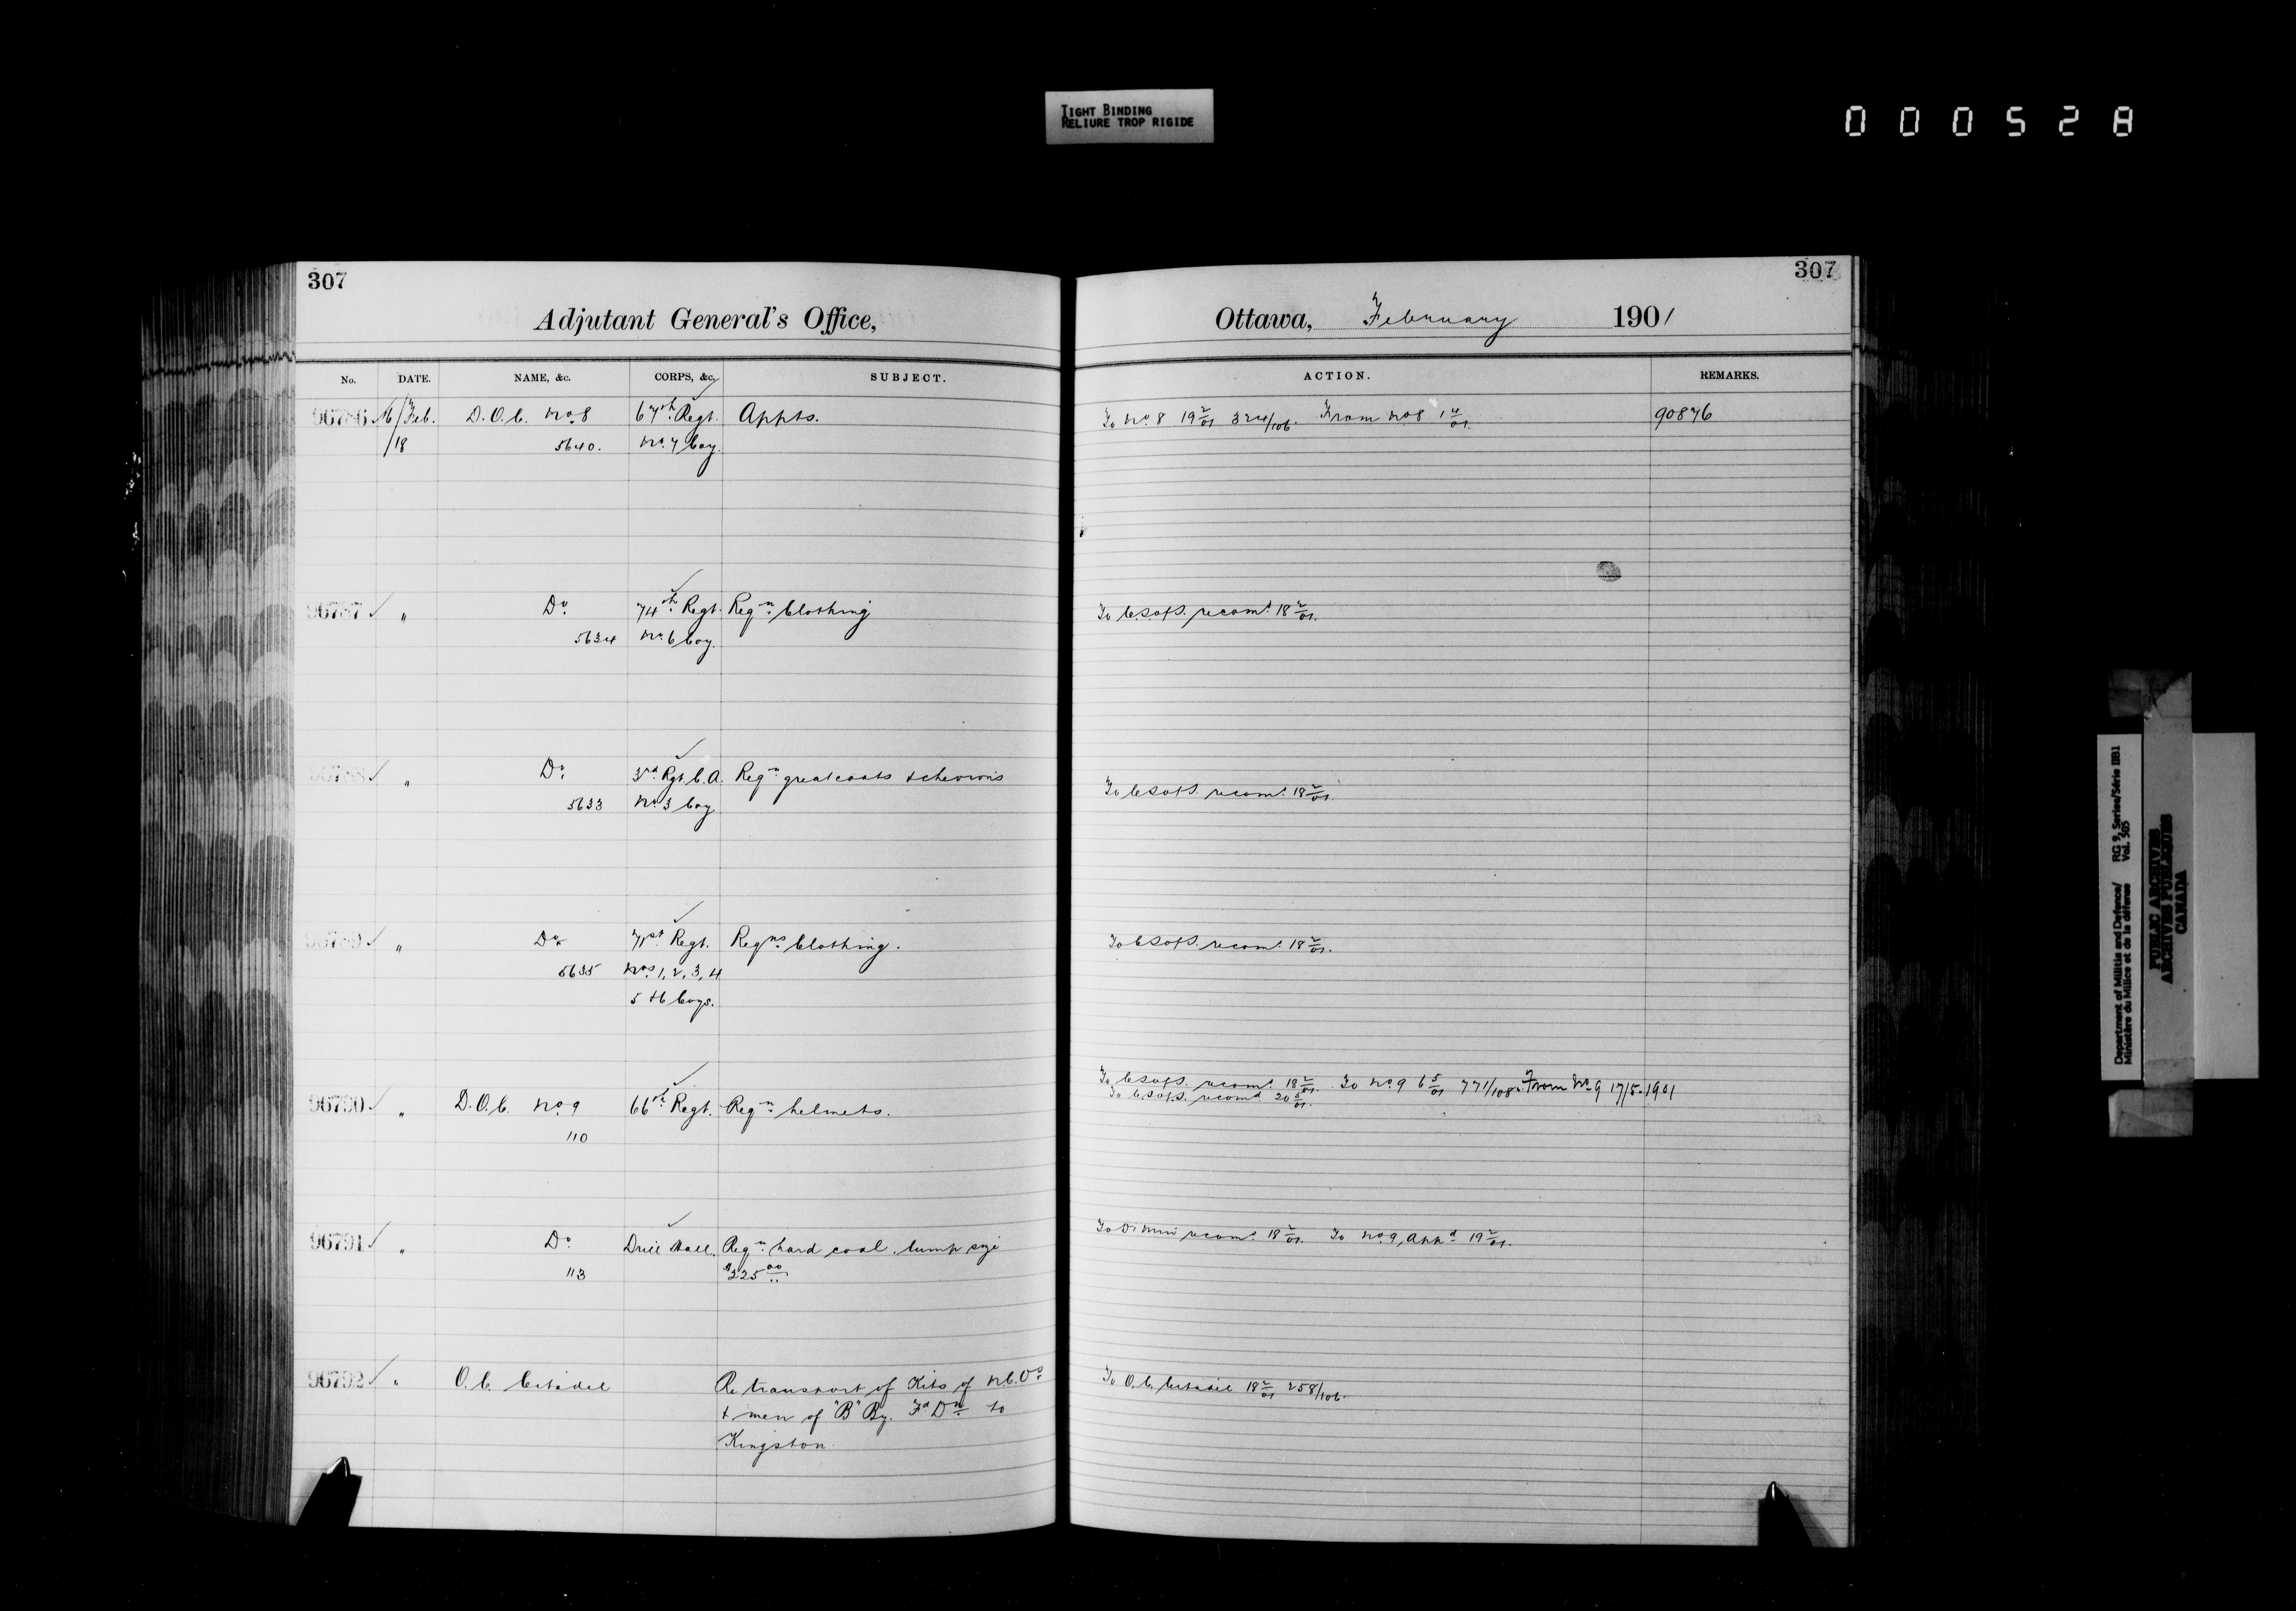 TIGHT BINDING
RELIURE TROP RIGIDE
000528
307
307
Adjutant General's Office,
Ottawa, February 1901
No. DATE. NAME, &c. CORPS, &c. SUBJECT. ACTION. REMARKS.
96786 16/Feb. D.O.C. No. 8 67th Regt. Appts. To No. 8 19 2/01 324/106. From No 8 1 4/01. 90876
/18 5640. No. 7 Coy.
96787 " Do. 74th Regt. Reqn. Clothing To C.S. of S. recomd. 18 2/01.
5634 No. 6 Coy.
96788 " Do. 3rd Rgt. C.A. Reqn. greatcoats & chevrons To C.S. of S. recomd. 18 2/01.
5633 No. 3 Coy
96789 " Do. 71st Regt. Reqns Clothing. To C.S. of S. recomd. 18 2/01.
5635 Nos. 1, 2, 3, 4
5 & 6 Coys.
To C.S. of S. recomd. 18 2/01. To No. 9 6 5/01 771/108. From No. 9 17/5.1901
To C.S. of S. recomd. 20 5/01.
96790 " D.O.C. No. 9 66th Regt. Reqn. helmets.
110
96791 " Do. Drill Hall. Reqn. hard coal, lump size To D. Min recomd. 18 2/01. To No. 9, Appd. 19 2/01.
113 $325.00
96792 " O.C. Citadel Re transport of Kits of N.C.Os To O.C. Citadel 18 2/01 258/106.
& men of "B" By. Fd Dn. to
Kingston.
Department of Militia and Defence/ RG 9, Series/Série IIB1
Ministère du Milice et de la défense Vol. 505
PUBLIC ARCHIVES
ARCHIVES PUBLIQUES
CANADA